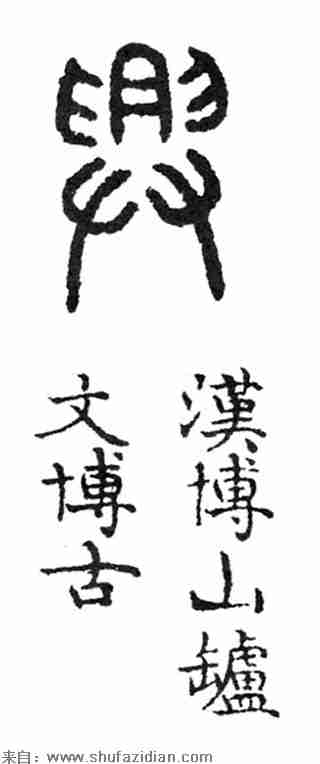 興
漢博山罏
文博古
来自：www.shufazidian.com